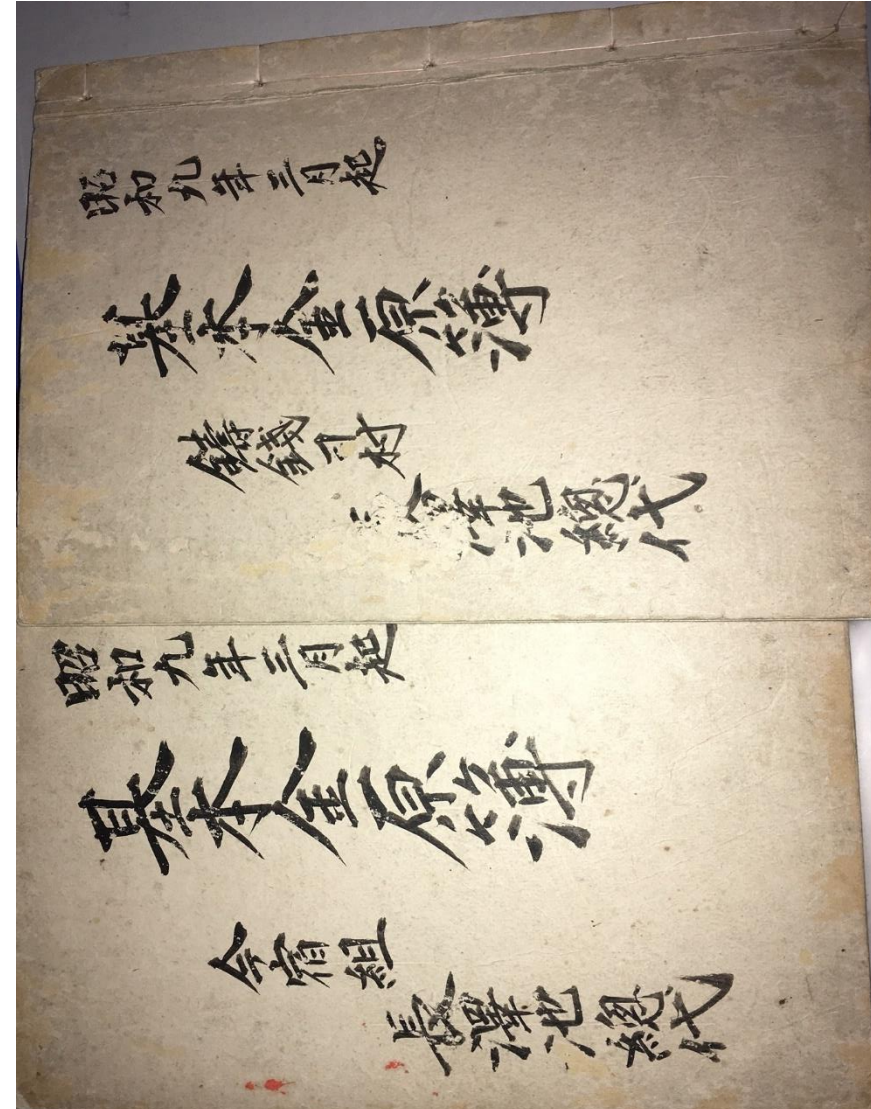 昭和九年三月起
基本金原簿
鑄錢司村
澤池總代
昭和九年三月起
基本金原簿
今宿組
長澤池總代